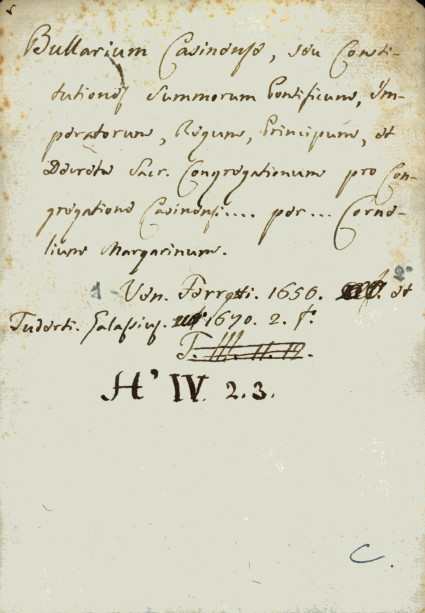 Bullarium Casinense, seu Consti-
tutiones Summorum Pontificum, Im-
peratorum, Regum, Principum, et
Decreta Sacr. Congregationum pro Con-
gregatione Casinensi.... per... Corne-
lium Margarinum.
1 - Ven. Ferretti. 1650. f. et 2º
Tuderti. Galassius. 1670. 2. f.
T. III. 11. 12.
H' IV. 2. 3.
C.